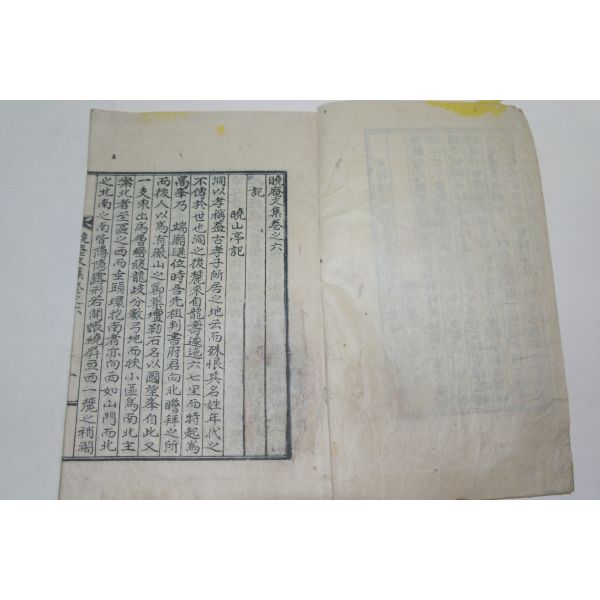 曉庵文集卷之六
記
曉山亭記
洞以孝稱益古孝子所居之地云而殊恨其名姓年代之
不傳於世也洞之後麓來自龍壽逶迤六七里而特起爲
萬峯乃 端廟遜位時吾先祖判書府君向北瞻拜之所
而後人以爲有嚴山之爲築壇勒石名以國望峯自此又
一支東出爲 龍歧分數弓地而挾小區爲南北主
案北者至區之西而垂頭環抱南者亦向西如山門而北
之北南之南皆隱隱露形若開眼繞屛亘西一麓之稍濶
曉庵文集卷之六